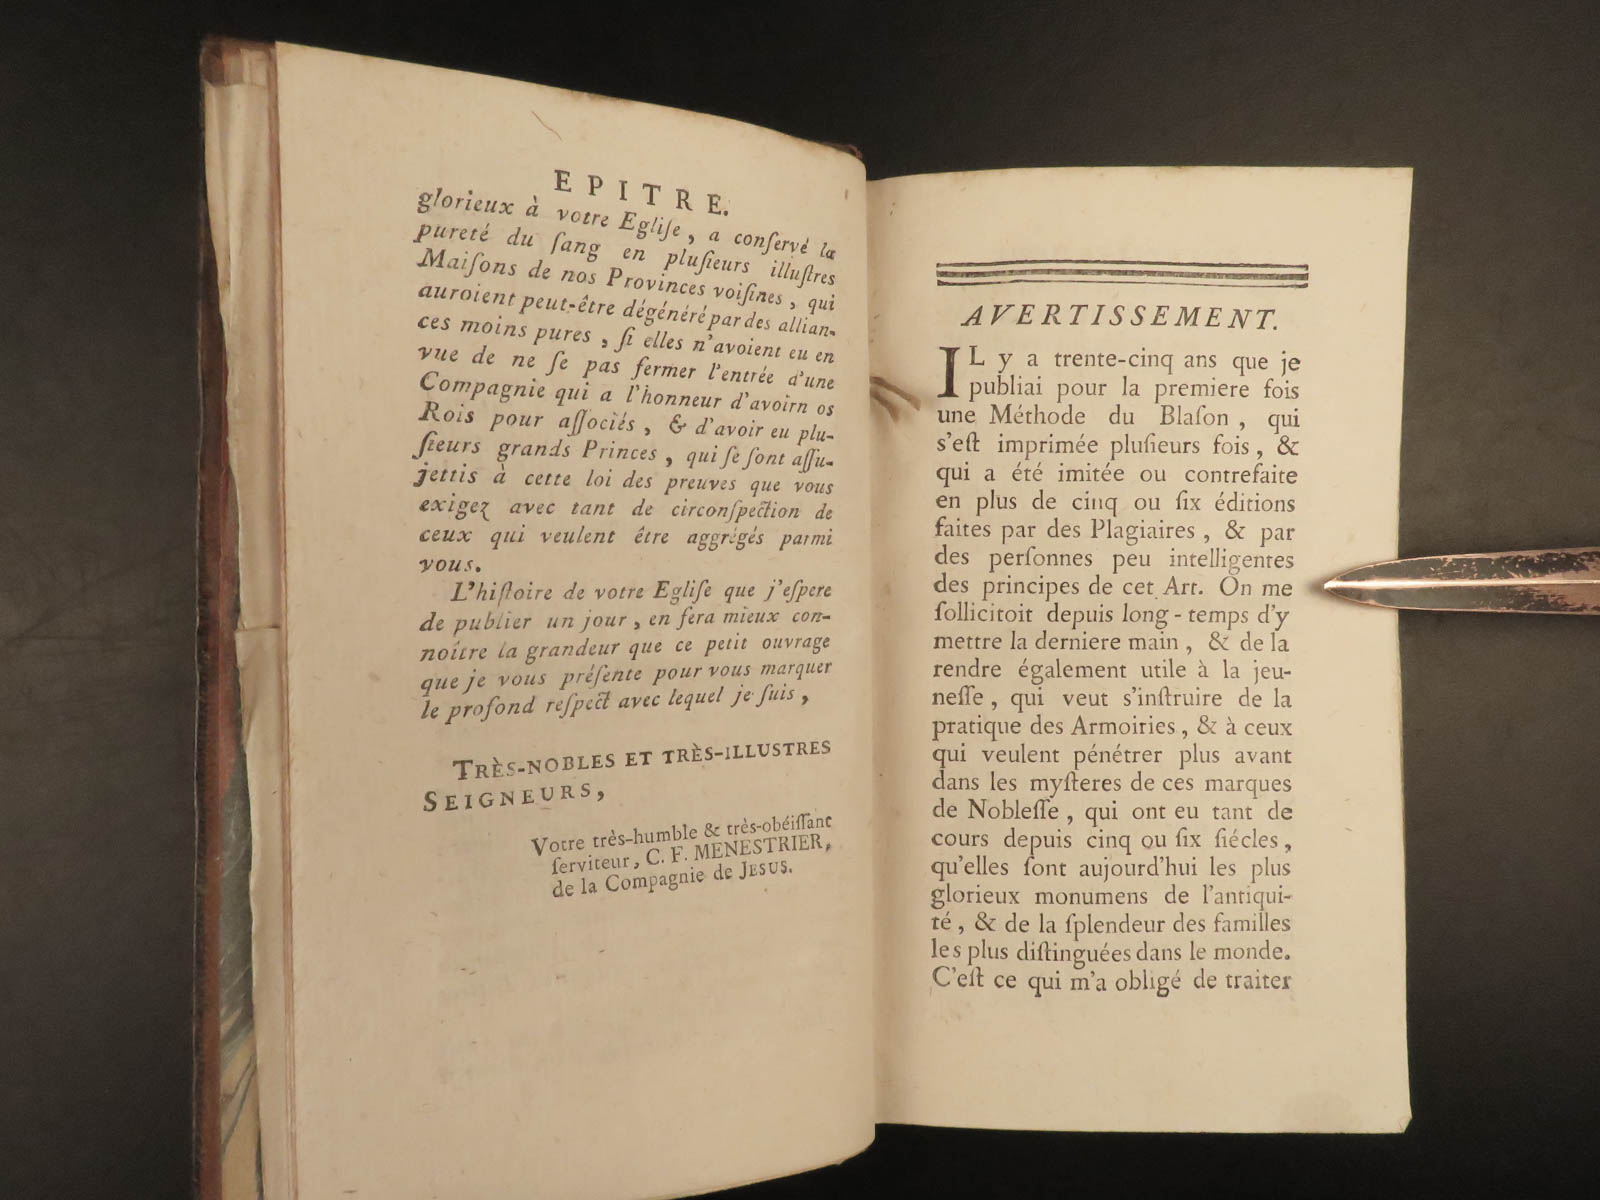 EPITRE.
glorieux à votre Egliſe, a conſervé la
pureté du ſang en pluſieurs illuſtres
Maiſons de nos Provinces voiſines, qui
auroient peut-être dégénéré par des allian-
ces moins pures, ſi elles n'avoient eu en
vue de ne ſe pas fermer l'entrée d'une
Compagnie qui a l'honneur d'avoirn os
Rois pour aſſociés, & d'avoir eu plu-
ſieurs grands Princes, qui ſe ſont aſſu-
jettis à cette loi des preuves que vous
exigez avec tant de circonſpection de
ceux qui veulent être aggrégés parmi
vous.
L'hiſtoire de votre Egliſe que j'eſpere
de publier un jour, en fera mieux con-
noître la grandeur que ce petit ouvrage
que je vous préſente pour vous marquer
le profond reſpect avec lequel je ſuis,
TRÈS-NOBLES ET TRÈS-ILLUSTRES
SEIGNEURS,
Votre très-humble & très-obéiſſant
ſerviteur, C. F. MENESTRIER,
de la Compagnie de JESUS.
AVERTISSEMENT.
IL y a trente-cinq ans que je
publiai pour la premiere fois
une Méthode du Blaſon, qui
s'eſt imprimée pluſieurs fois, &
qui a été imitée ou contrefaite
en plus de cinq ou ſix éditions
faites par des Plagiaires, & par
des perſonnes peu intelligentes
des principes de cet Art. On me
ſollicitoit depuis long-temps d'y
mettre la derniere main, & de la
rendre également utile à la jeu-
neſſe, qui veut s'inſtruire de la
pratique des Armoiries, & à ceux
qui veulent pénétrer plus avant
dans les myſteres de ces marques
de Nobleſſe, qui ont eu tant de
cours depuis cinq ou ſix ſiécles,
qu'elles ſont aujourd'hui les plus
glorieux monumens de l'antiqui-
té, & de la ſplendeur des familles
les plus diſtinguées dans le monde.
C'eſt ce qui m'a obligé de traiter